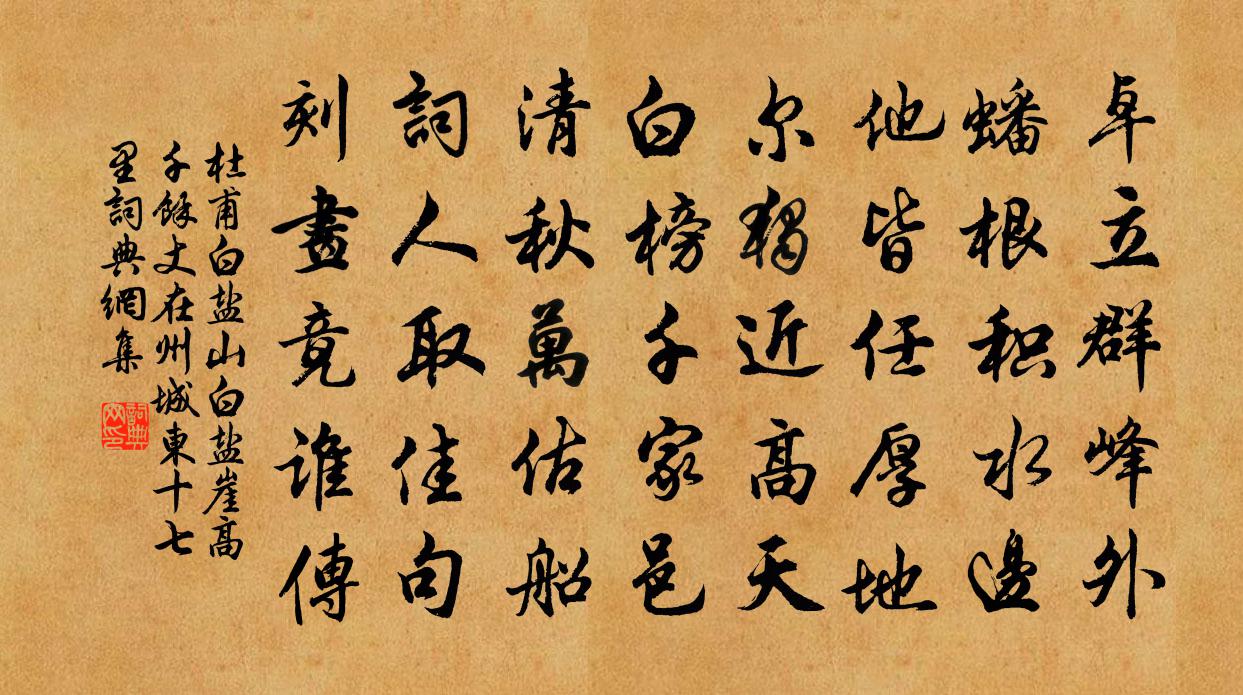 卓立群峰外
蟠根积水邊
他皆任厚地
尔獨近高天
白榜千家邑
清秋萬估船
詞人取佳句
刻畫竟誰傳
杜甫白盐山白盐崖高
千餘丈在州城東十七
里詞典網集
詞典
网印